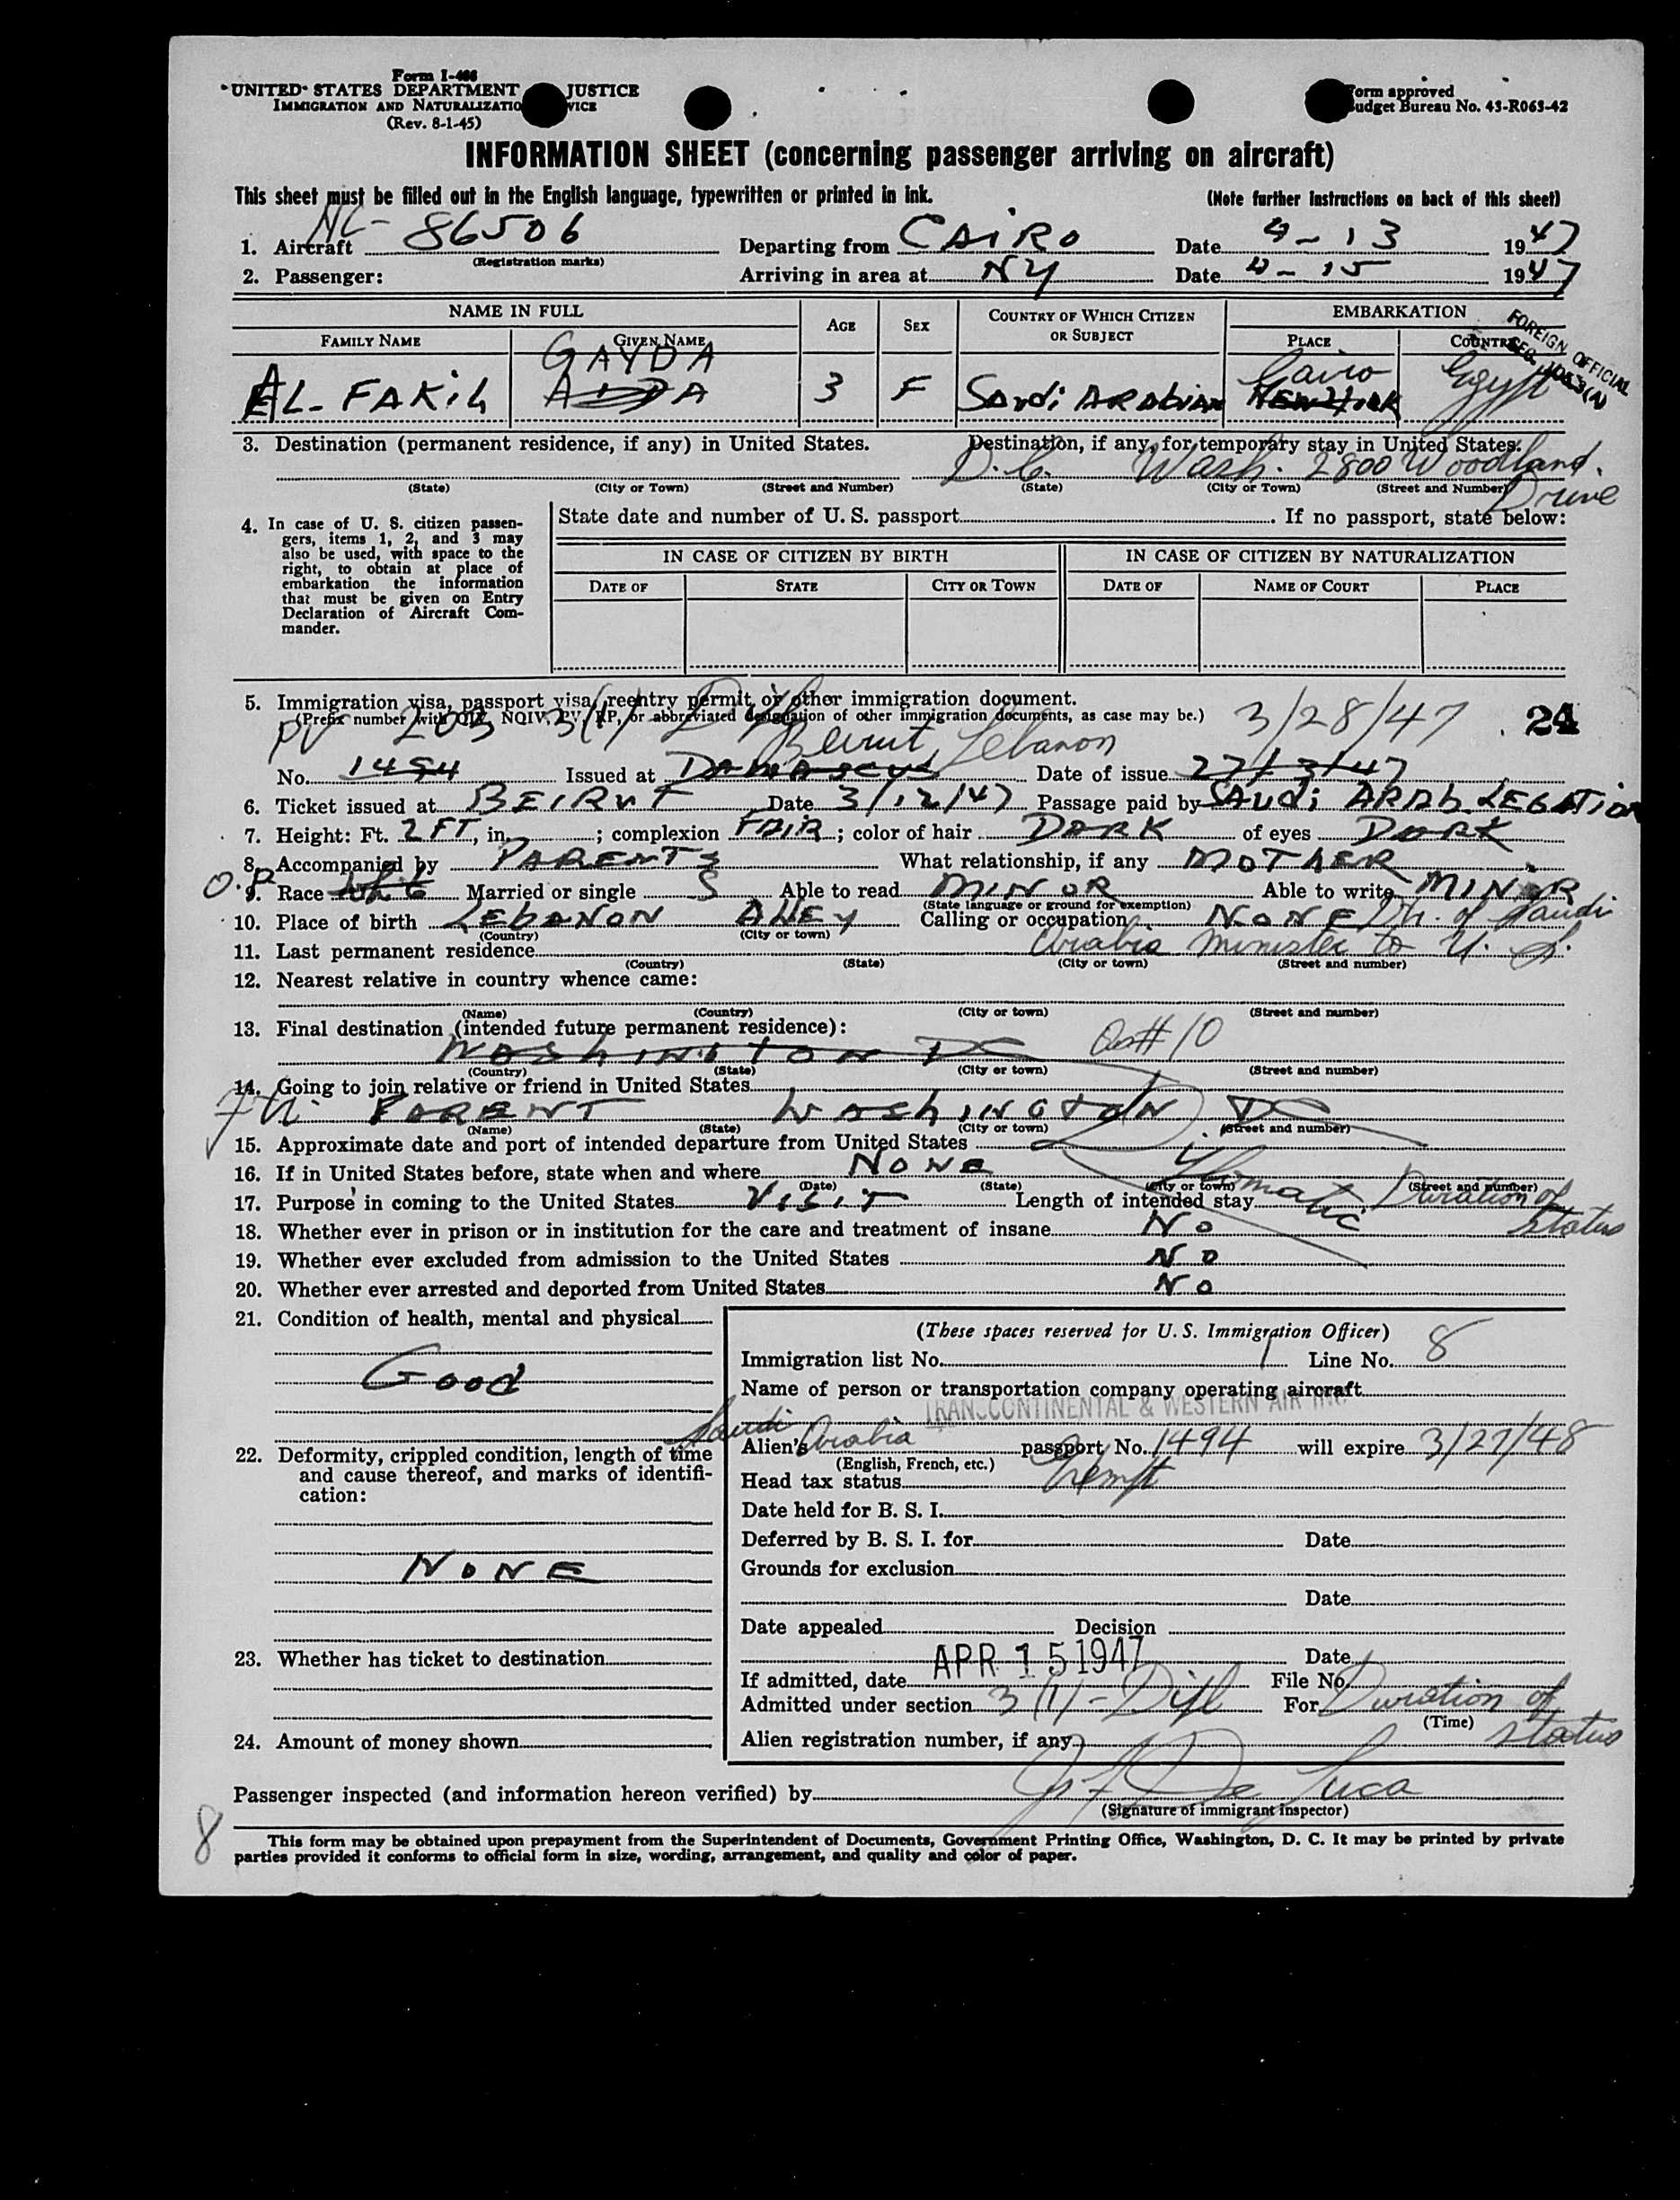 Form I-466
UNITED STATES DEPARTMENT JUSTICE
IMMIGRATION AND NATURALIZATIO VICE
(Rev. 8-1-45)
Form approved
Budget Bureau No. 43-R063-42
INFORMATION SHEET (concerning passenger arriving on aircraft)
This sheet must be filled out in the English language, typewritten or printed in ink. (Note further instructions on back of this sheet)
1. Aircraft NC-86506 Departing from CAIRO Date 4-13 1947
(Registration marks)
2. Passenger: Arriving in area at NY Date 4-15 1947
NAME IN FULL AGE SEX COUNTRY OF WHICH CITIZEN OR SUBJECT EMBARKATION
FAMILY NAME GIVEN NAME PLACE COUNTRY
FOREIGN OFFICIAL
GAYDA
EL-FAKIh AIDA 3 F Saudi ARABIAN Cairo NEW YORK Egypt
3. Destination (permanent residence, if any) in United States. Destination, if any, for temporary stay in United States.
D.C. Wash. 2800 Woodland Drive
(State) (City or Town) (Street and Number) (State) (City or Town) (Street and Number)
4. In case of U. S. citizen passengers, items 1, 2, and 3 may also be used, with space to the right, to obtain at place of embarkation the information that must be given on Entry Declaration of Aircraft Commander.
State date and number of U. S. passport. If no passport, state below:
IN CASE OF CITIZEN BY BIRTH IN CASE OF CITIZEN BY NATURALIZATION
DATE OF STATE CITY OR TOWN DATE OF NAME OF COURT PLACE
5. Immigration visa, passport visa, reentry permit, or other immigration document.
(Prefix number with QIV, NQIV, PV, RP, or abbreviated designation of other immigration documents, as case may be.) 3/28/47 24
PV 203 3(1) Dipl
Beirut, Lebanon
No. 1494 Issued at DAMASCUS Date of issue 27/3/47
6. Ticket issued at BEIRUT Date 3/12/47 Passage paid by SAUDI ARAB LEGATION
7. Height: Ft. 2 FT, in. ; complexion FAIR; color of hair DARK of eyes DARK
8. Accompanied by PARENTS What relationship, if any MOTHER
O.P.
9. Race Married or single S Able to read MINOR Able to write MINOR
(State language or ground for exemption)
10. Place of birth LEBANON ALLEY Calling or occupation NONE Dh. of Saudi
(Country) (City or town)
11. Last permanent residence Arabia Minister to U. S.
(Country) (State) (City or town) (Street and number)
12. Nearest relative in country whence came:
(Name) (Country) (City or town) (Street and number)
13. Final destination (intended future permanent residence):
WASHINGTON DC #10
(Country) (State) (City or town) (Street and number)
14. Going to join relative or friend in United States
PARENT WASHINGTON DC
(Name) (State) (City or town) (Street and number)
15. Approximate date and port of intended departure from United States
16. If in United States before, state when and where NONE
(Date) (State) (City or town) (Street and number)
Diplomatic
17. Purpose in coming to the United States VISIT Length of intended stay Duration of Status
18. Whether ever in prison or in institution for the care and treatment of insane NO
19. Whether ever excluded from admission to the United States NO
20. Whether ever arrested and deported from United States NO
21. Condition of health, mental and physical
Good
22. Deformity, crippled condition, length of time and cause thereof, and marks of identification:
NONE
23. Whether has ticket to destination
24. Amount of money shown
(These spaces reserved for U. S. Immigration Officer)
Immigration list No. 1 Line No. 8
Name of person or transportation company operating aircraft
TRANSCONTINENTAL & WESTERN AIR INC
Alien's Saudi Arabia passport No. 1494 will expire 3/27/48
(English, French, etc.)
Head tax status Exempt
Date held for B. S. I.
Deferred by B. S. I. for Date
Grounds for exclusion
Date
Date appealed Decision
Date
If admitted, date APR 15 1947 File No.
Admitted under section 3(1)-Dipl For Duration of status
(Time)
Alien registration number, if any
Passenger inspected (and information hereon verified) by De Luca
(Signature of immigrant inspector)
8
This form may be obtained upon prepayment from the Superintendent of Documents, Government Printing Office, Washington, D. C. It may be printed by private
parties provided it conforms to official form in size, wording, arrangement, and quality and color of paper.